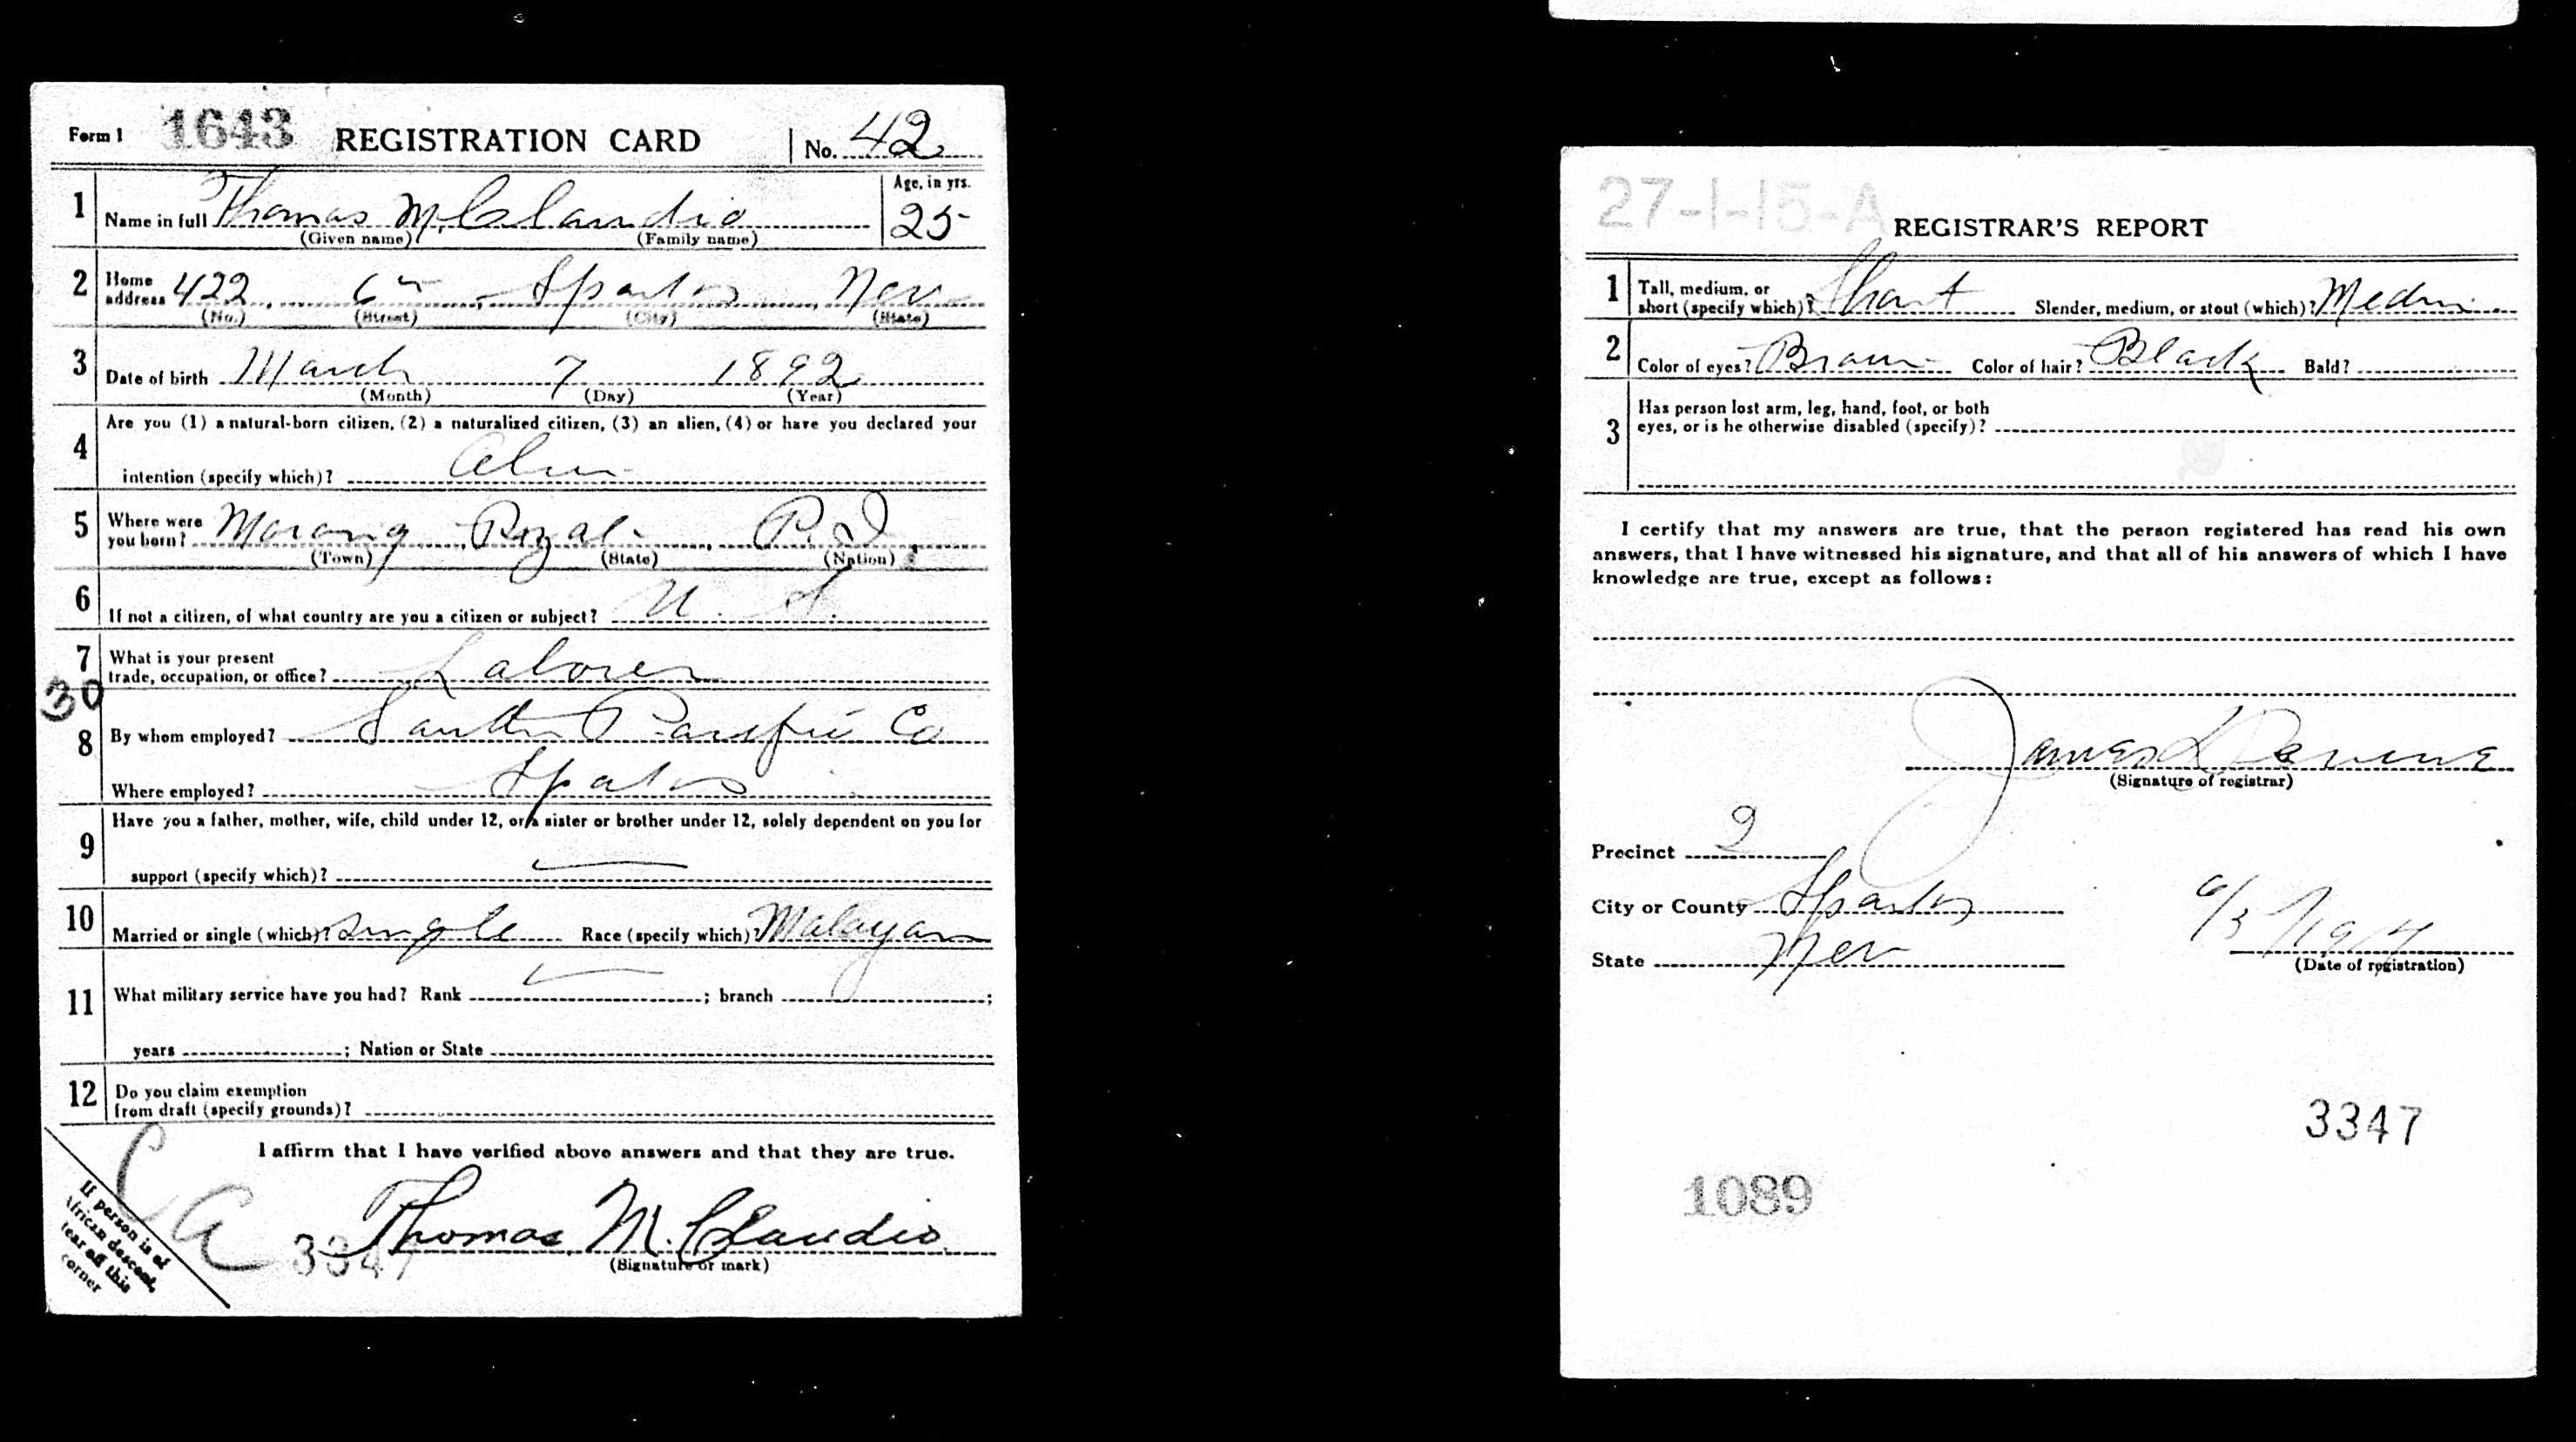 Form 1 1643 REGISTRATION CARD No. 42
1 Name in full Thomas M. Claudio Age, in yrs. 25
(Given name) (Family name)
2 Home address 422 6th Sparks Nev
(No.) (Street) (City) (State)
3 Date of birth March 7 1892
(Month) (Day) (Year)
4 Are you (1) a natural-born citizen, (2) a naturalized citizen, (3) an alien, (4) or have you declared your
intention (specify which)? Alien
5 Where were you born? Morong Rizal P.I.
(Town) (State) (Nation)
6 If not a citizen, of what country are you a citizen or subject? U.S.
7 What is your present
trade, occupation, or office? Laborer
30
8 By whom employed? Southern Pacific Co
Where employed? Sparks
9 Have you a father, mother, wife, child under 12, or a sister or brother under 12, solely dependent on you for
support (specify which)?
10 Married or single (which)? Single Race (specify which)? Malayan
11 What military service have you had? Rank ; branch ;
years ; Nation or State
12 Do you claim exemption
from draft (specify grounds)?
I affirm that I have verified above answers and that they are true.
C a 3347 Thomas M. Claudio
(Signature or mark)
If person is of
African descent,
tear off this
corner
27-1-15-A
REGISTRAR'S REPORT
1 Tall, medium, or
short (specify which)? Short Slender, medium, or stout (which)? Medm
2 Color of eyes? Brown Color of hair? Black Bald?
3 Has person lost arm, leg, hand, foot, or both
eyes, or is he otherwise disabled (specify)?
I certify that my answers are true, that the person registered has read his own
answers, that I have witnessed his signature, and that all of his answers of which I have
knowledge are true, except as follows:
James
(Signature of registrar)
Precinct 2
City or County Sparks
State Nev 6/5/1917
(Date of registration)
3347
1089